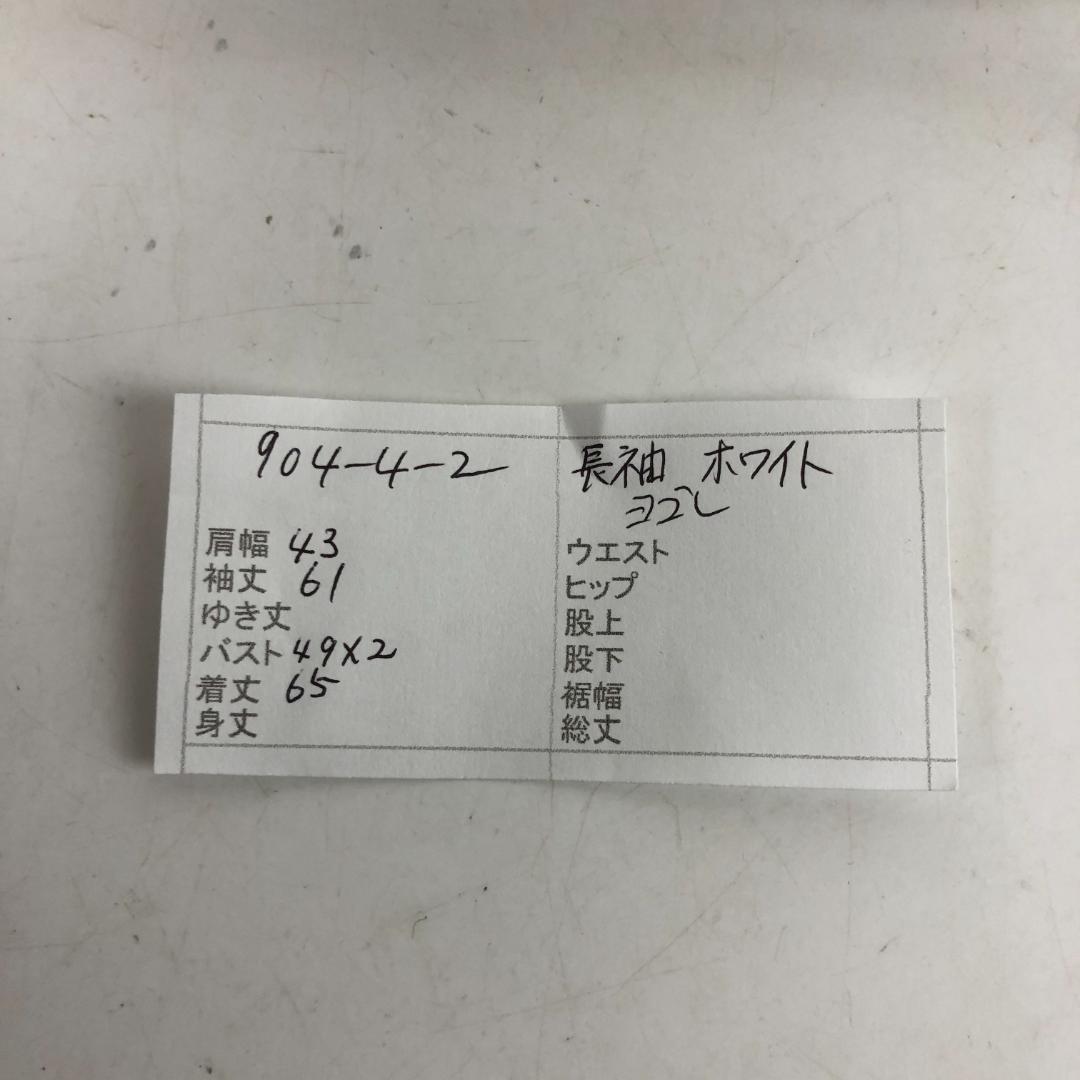 904-4-2
長袖 ホワイト
ヨゴレ
肩幅 43
袖丈 61
ゆき丈
バスト 49×2
着丈 65
身丈
ウエスト
ヒップ
股上
股下
裾幅
総丈